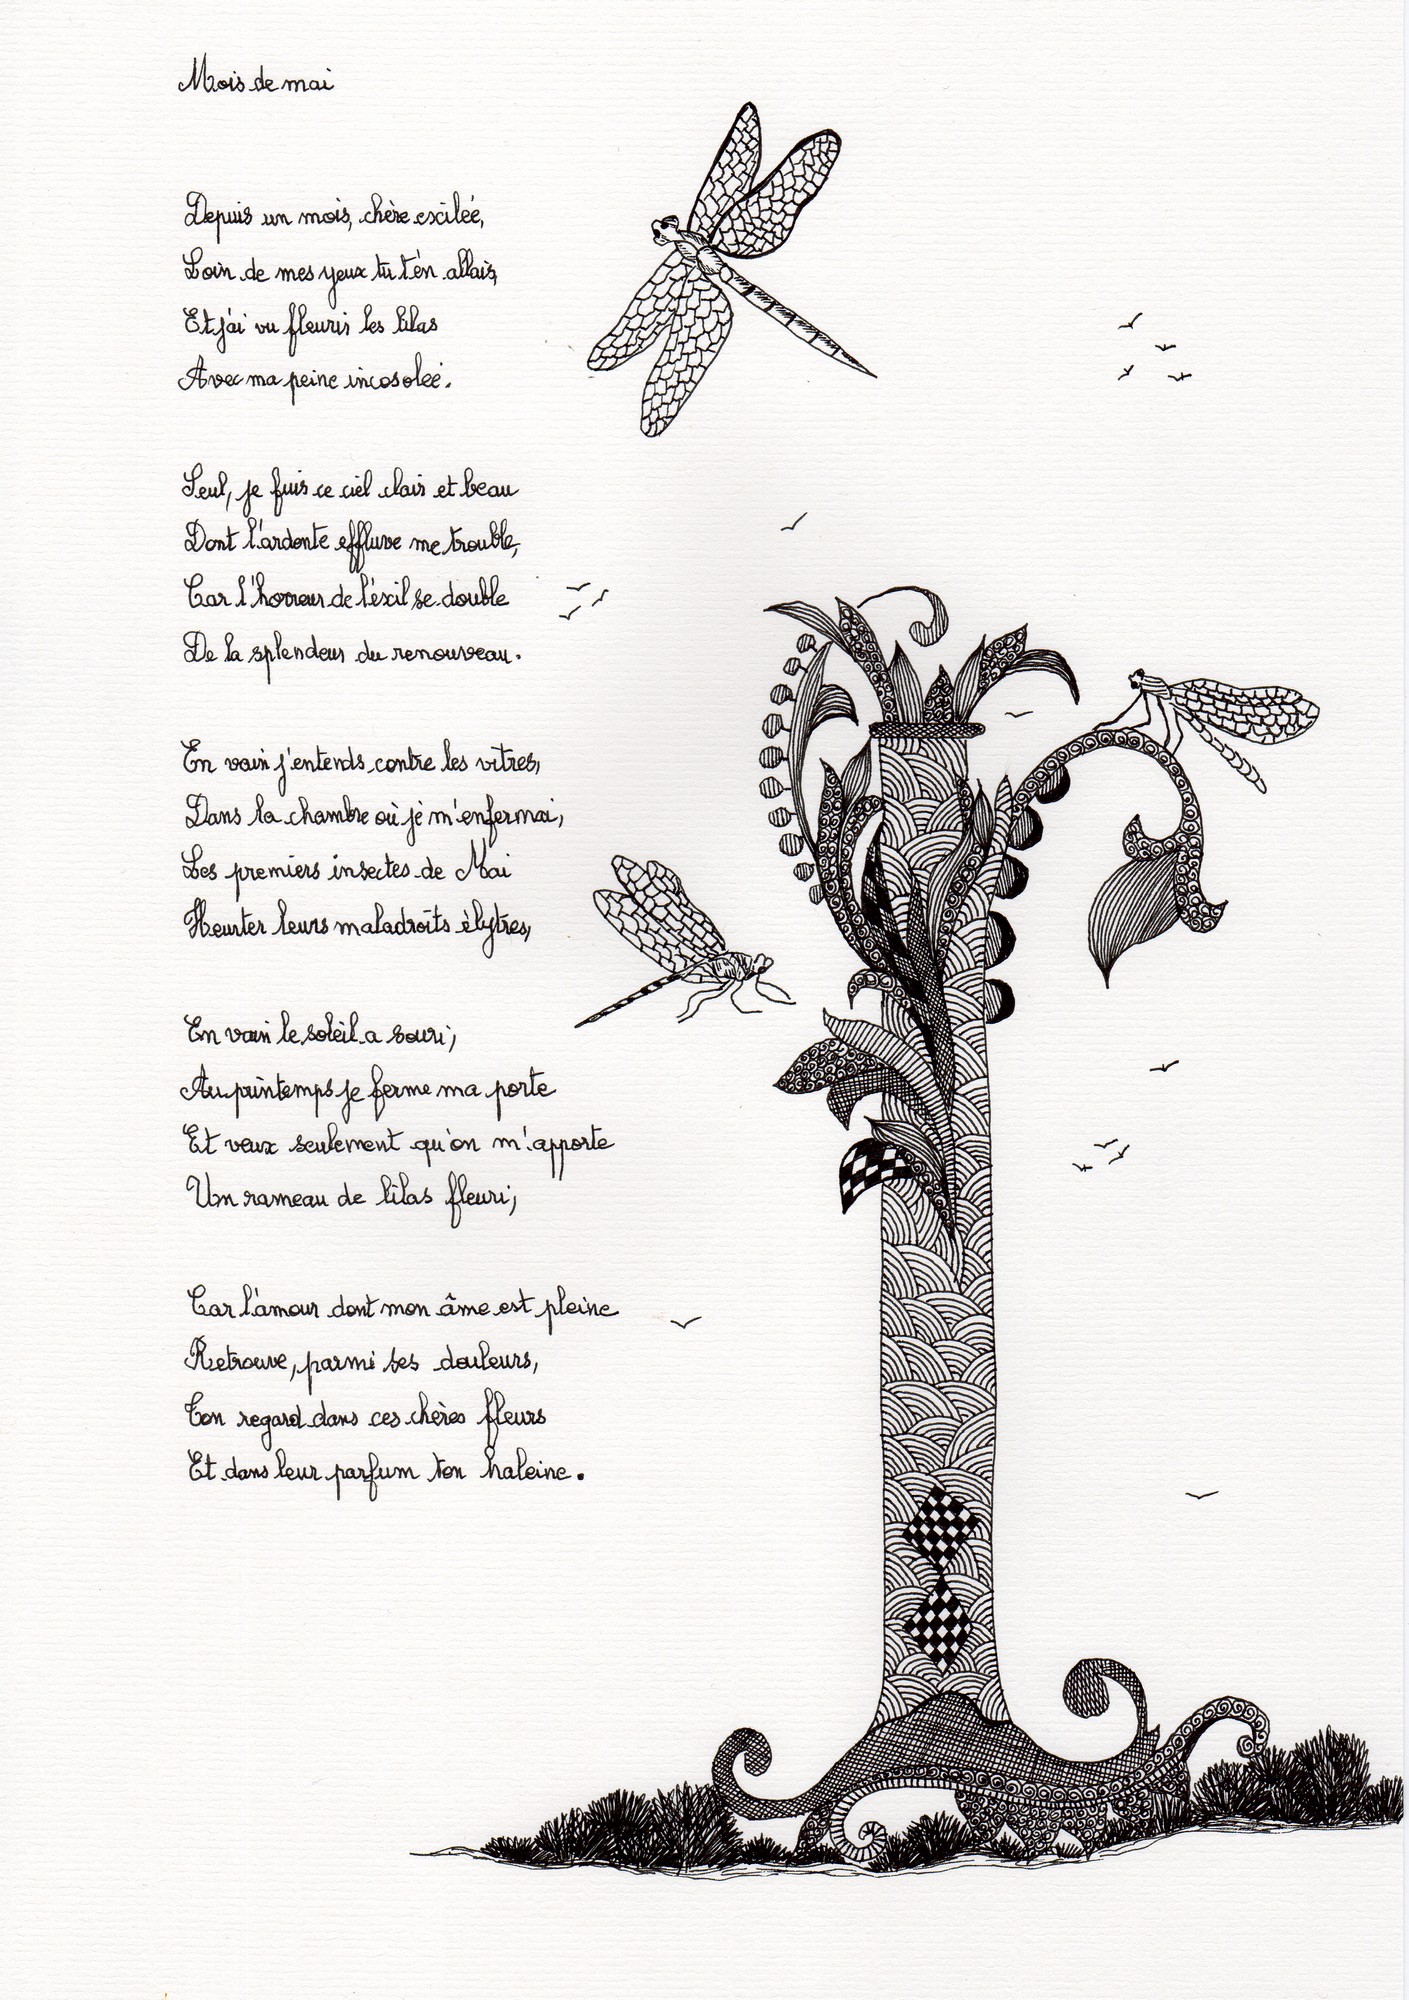 Mois de mai
Depuis un mois, chère exilée,
Loin de mes yeux tu t'en allais,
Et j'ai vu fleurir les lilas
Avec ma peine incosolée.
Seul, je fuis ce ciel clair et beau
Dont l'ardente effluve me trouble,
Car l'horreur de l'éxil se double
De la splendeur du renouveau.
En vain j'entends contre les vitres,
Dans la chambre où je m'enfermai,
Les premiers insectes de Mai
Heurter leurs maladroits élytres,
En vain le soleil a souri;
Au printemps je ferme ma porte
Et veux seulement qu'on m'apporte
Un rameau de lilas fleuri;
Car l'amour dont mon âme est pleine
Retrouve, parmi ses douleurs,
Ton regard dans ces chères fleurs
Et dans leur parfum ton haleine.